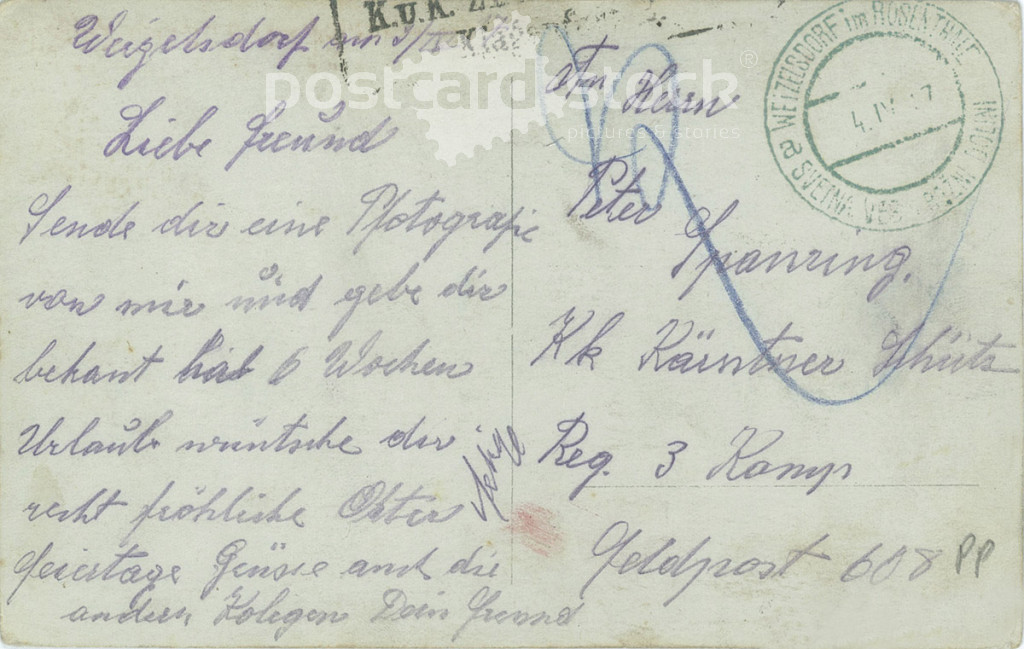 K.u.K.
Weigelsdorf am
Liebe Freund
Sende dir eine Pfotografie
von mir und gebe dir
bekant hab 6 Wochen
Urlaub wüntsche dir
recht fröhliche Oster
feiertage Grüsse auch die
andern Kolegen Dein Freund
An Herrn
Peter
Spanring.
Kk Kärntner Schütz
Reg. 3 Komp
Feldpost 608
PP
WEIZELSDORF im ROSENTHALE
4. IV. 17
a SVETNA VES
postcard stock
pictures & stories